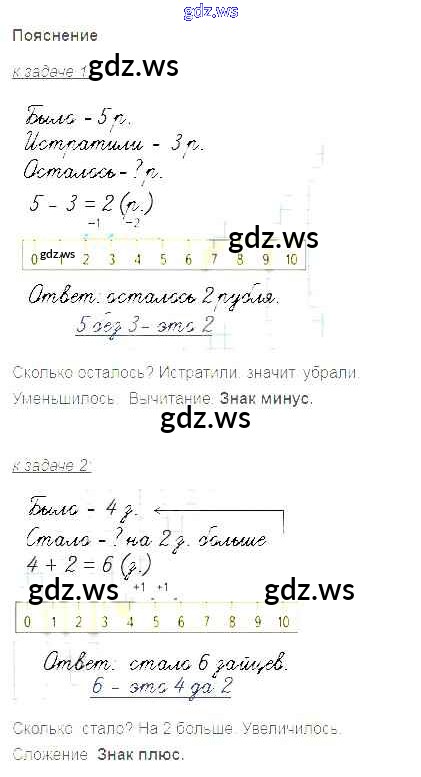 gdz.ws
Пояснение
к задаче 1: gdz.ws
Было - 5 р.
Истратили - 3 р.
Осталось - ? р.
5 - 3 = 2 (р.)
-1 -2
gdz.ws
0 1 2 3 4 5 6 7 8 9 10
gdz.ws
Ответ: осталось 2 рубля.
5 без 3 - это 2
Сколько осталось? Истратили, значит, убрали.
Уменьшилось. Вычитание. Знак минус.
gdz.ws
к задаче 2:
Было - 4 з.
Стало - ? на 2 з. больше
4 + 2 = 6 (з.)
+1 +1
gdz.ws gdz.ws
0 1 2 3 4 5 6 7 8 9 10
Ответ: стало 6 зайцев.
6 - это 4 да 2
Сколько стало? На 2 больше. Увеличилось.
Сложение. Знак плюс.